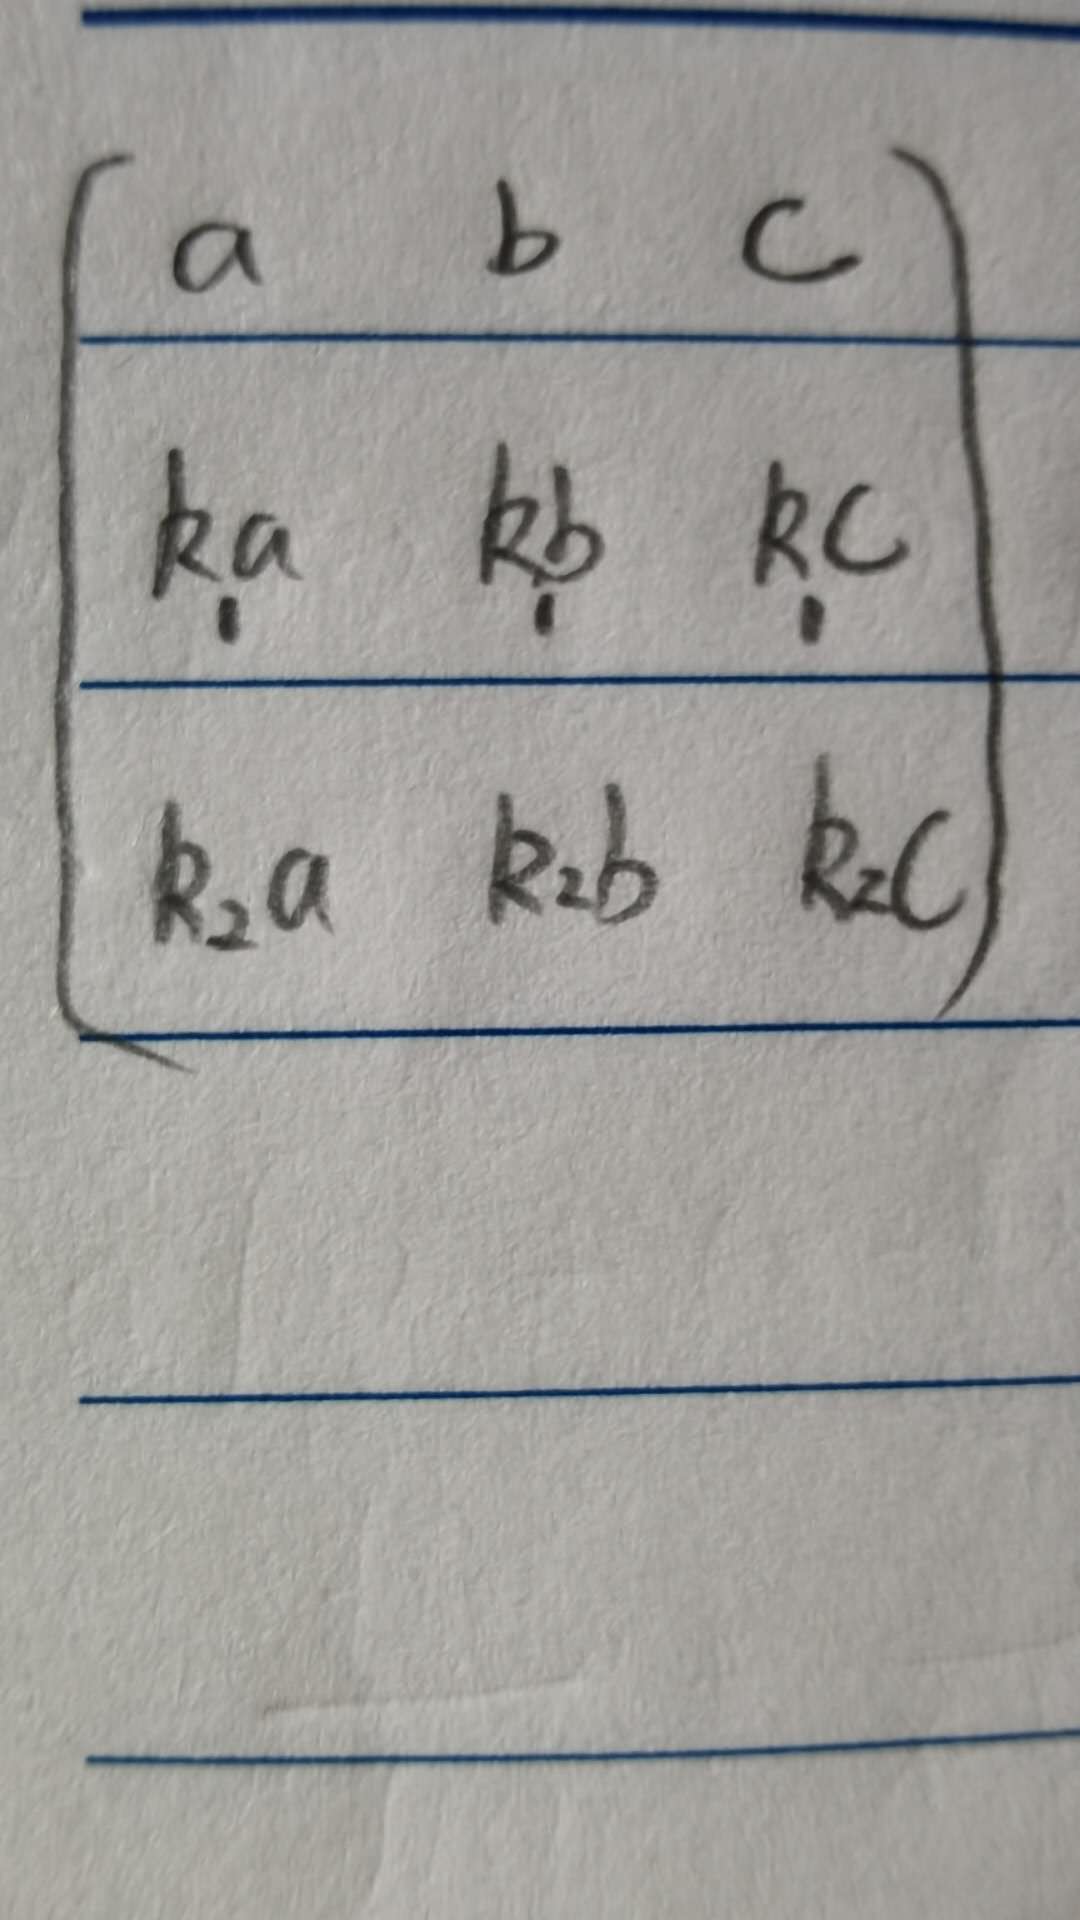 a b c
k₁a k₁b k₁c
k₂a k₂b k₂c